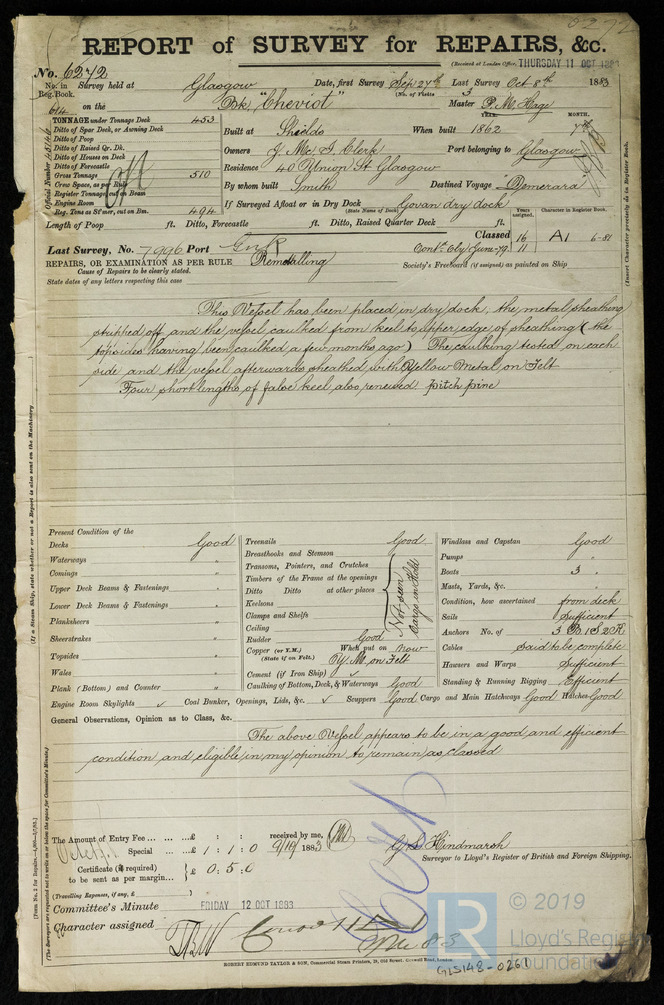 REPORT of SURVEY for REPAIRS, &c.
(Received at London Office, THURSDAY 11 OCT 1883
No. 6272
No. in Survey held at Glasgow Date, first Survey Sep 27th Last Survey Oct 8th 1883
Reg. Book. (No. of Visits 3
614 on the Bk "Cheviot" Master P. M. Hage
TONNAGE under Tonnage Deck 453
Ditto of Spar Deck, or Awning Deck
Ditto of Poop
Ditto of Raised Qr. Dk.
Ditto of Houses on Deck
Ditto of Forecastle
Gross Tonnage 510
Crew Space, as per Rule
Register Tonnage, cut on Beam
Engine Room
Reg. Tons as St'mer, cut on Bm. 494
Official Number
YEAR. MONTH.
Built at Shields When built 1862 7th
Owners J. Mc A. Clerk Port belonging to Glasgow
Residence 40 Union St Glasgow
By whom built Smith Destined Voyage Demerara
If Surveyed Afloat or in Dry Dock Govan dry dock
(State Name of Dock)
Length of Poop ft. Ditto, Forecastle ft. Ditto, Raised Quarter Deck ft.
Years assigned. Character in Register Book.
Classed 16 A1 6-81
Last Survey, No. 7996 Port Grk Cont. Cly June-79 11
REPAIRS, OR EXAMINATION AS PER RULE Remetalling Society's Freeboard (if assigned) as painted on Ship
Cause of Repairs to be clearly stated.
State dates of any letters respecting this case
This Vessel has been placed in dry dock, the metal sheathing
stripped off and the vessel caulked from keel to upper edge of sheathing (the
topsides having been caulked a few months ago) The caulking tested on each
side and the vessel afterwards sheathed with Yellow Metal on Felt
Four short lengths of false keel also renewed pitch pine
Present Condition of the
Decks Good
Waterways "
Comings "
Upper Deck Beams & Fastenings "
Lower Deck Beams & Fastenings "
Planksheers "
Sheerstrakes "
Topsides "
Wales "
Plank (Bottom) and Counter "
Treenails Good
Breasthooks and Stemson
Transoms, Pointers, and Crutches
Timbers of the Frame at the openings
Ditto Ditto at other places
Keelsons
Clamps and Shelfs
Ceiling
Not seen
Cargo in Hold
Rudder Good
Copper (or Y.M.) When put on now
(State if on Felt.) Y M on Felt
Cement (if Iron Ship) ✓
Caulking of Bottom, Deck, & Waterways Good
Windlass and Capstan Good
Pumps "
Boats 3 "
Masts, Yards, &c. "
Condition, how ascertained from deck
Sails Sufficient
Anchors No. of 3 B. 1 S 2 K
Cables said to be complete
Hawsers and Warps Sufficient
Standing & Running Rigging Efficient
Engine Room Skylights ✓ Coal Bunker, Openings, Lids, &c. ✓ Scuppers Good Cargo and Main Hatchways Good Hatches Good
General Observations, Opinion as to Class, &c.
The above Vessel appears to be in a good and efficient
condition and eligible in my opinion to remain as classed
The Amount of Entry Fee ... £ : : received by me,
Special ... £ 1 : 1 : 0 9/10 1883
Certificate (if required) £ 0 : 5 : 0
to be sent as per margin...
(Travelling Expenses, if any, £ )
G. S. Hindmarsh
Surveyor to Lloyd's Register of British and Foreign Shipping.
Committee's Minute FRIDAY 12 OCT 1883
Character assigned
ROBERT EDMUND TAYLOR & SON, Commercial Steam Printers, 19, Old Street, Goswell Road, London.
(If a Steam Ship, state whether or not a Report is also sent on the Machinery
(Insert Character precisely as in Register Book.
(The Surveyors are requested not to write on or below the space for Committee's Minute.)
LR
© 2019
Lloyd's Register
Foundation
GLS148-0261